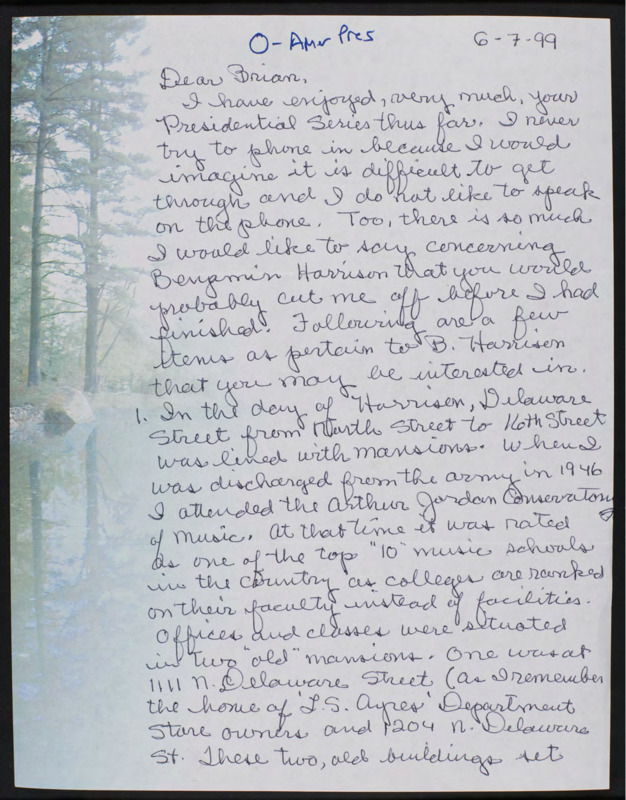 O- Amer Pres
6-7-99
Dear Brian,
I have enjoyed, very much, your
Presidential Series thus far. I never
try to phone in because I would
imagine it is difficult to get
through and I do not like to speak
on the phone. Too, there is so much
I would like to say concerning
Benjamin Harrison that you would
probably cut me off before I had
finished! Following are a few
items as pertain to B. Harrison
that you may be interested in.
1. In the day of Harrison, Delaware
Street from North Street to 16th Street
was lined with mansions. When I
was discharged from the army in 1946
I attended the Arthur Jordan Conservatory
of Music. At that time it was rated
as one of the top "10" music schools
in the country as colleges are ranked
on their faculty instead of facilities.
Offices and classes were situated
in two "old" mansions. One was at
1111 N. Delaware Street (as I remember
the home of 'L.S. Ayres' Department
Store owners and 1204 N. Delaware
St. These two, old buildings set